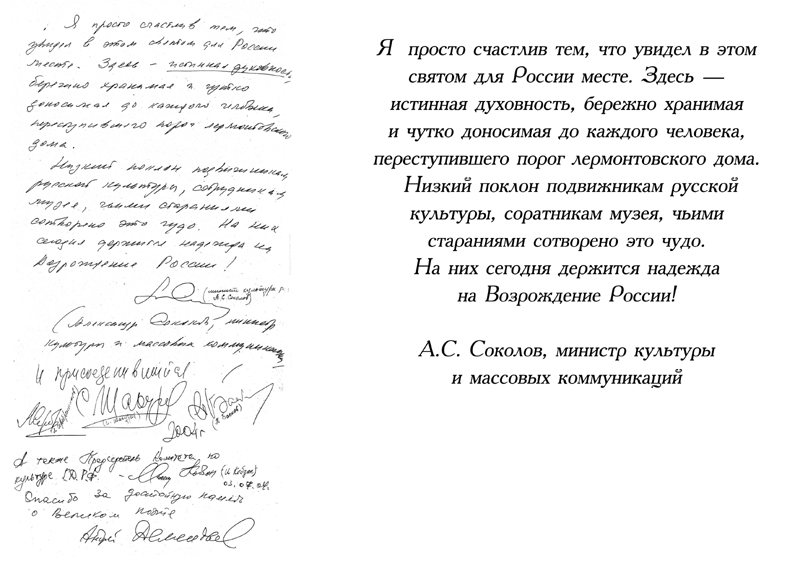 Я просто счастлив тем, что
увидел в этом святом для России
месте. Здесь – истинная духовность,
бережно хранимая и чутко
доносимая до каждого человека,
переступившего порог лермонтовского
дома.
Низкий поклон подвижникам
русской культуры, сотрудникам
музея, чьими стараниями
сотворено это чудо. На них
сегодня держится надежда на
Возрождение России!
(министр культуры
А.С. Соколов)
(Александр Соколов, министр
культуры и массовых коммуникаций)
И присоединившийся
2004 г
А также Председатель Комитета по
культуре Г.Д. Р.Ф. – (И Кобзон)
03.07.04.
Спасибо за достойную память
о великом поэте
Андрей Дементьев
Я просто счастлив тем, что увидел в этом
святом для России месте. Здесь —
истинная духовность, бережно хранимая
и чутко доносимая до каждого человека,
переступившего порог лермонтовского дома.
Низкий поклон подвижникам русской
культуры, соратникам музея, чьими
стараниями сотворено это чудо.
На них сегодня держится надежда
на Возрождение России!
А.С. Соколов, министр культуры
и массовых коммуникаций